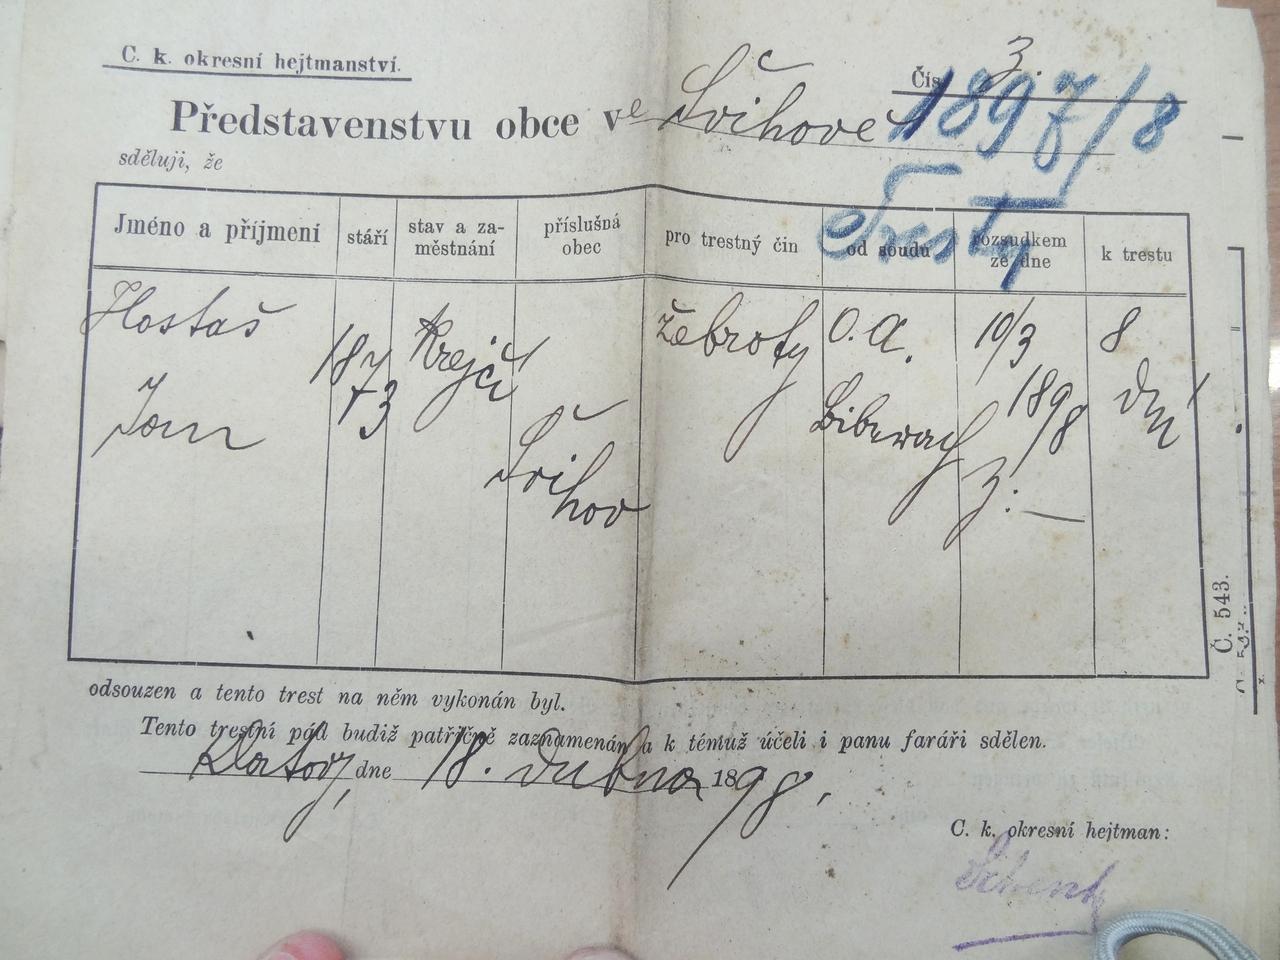 C. k. okresní hejtmanství.
Čís. 3.
Představenstvu obce ve Švihově
1897/8
Tresty
sděluji, že
Jméno a příjmení
stáří
stav a zaměstnání
příslušná obec
pro trestný čin
od soudu
rozsudkem ze dne
k trestu
Hostaš
Jan
1873
Krejčí
Švihov
žebroty
O. A.
Biberach
10/3
1898
z. —
8
dní
odsouzen a tento trest na něm vykonán byl.
Tento trestní pád budiž patřičně zaznamenán a k témuž účeli i panu faráři sdělen.
Klatovy, dne 18. dubna 1898.
C. k. okresní hejtman:
Č. 543.